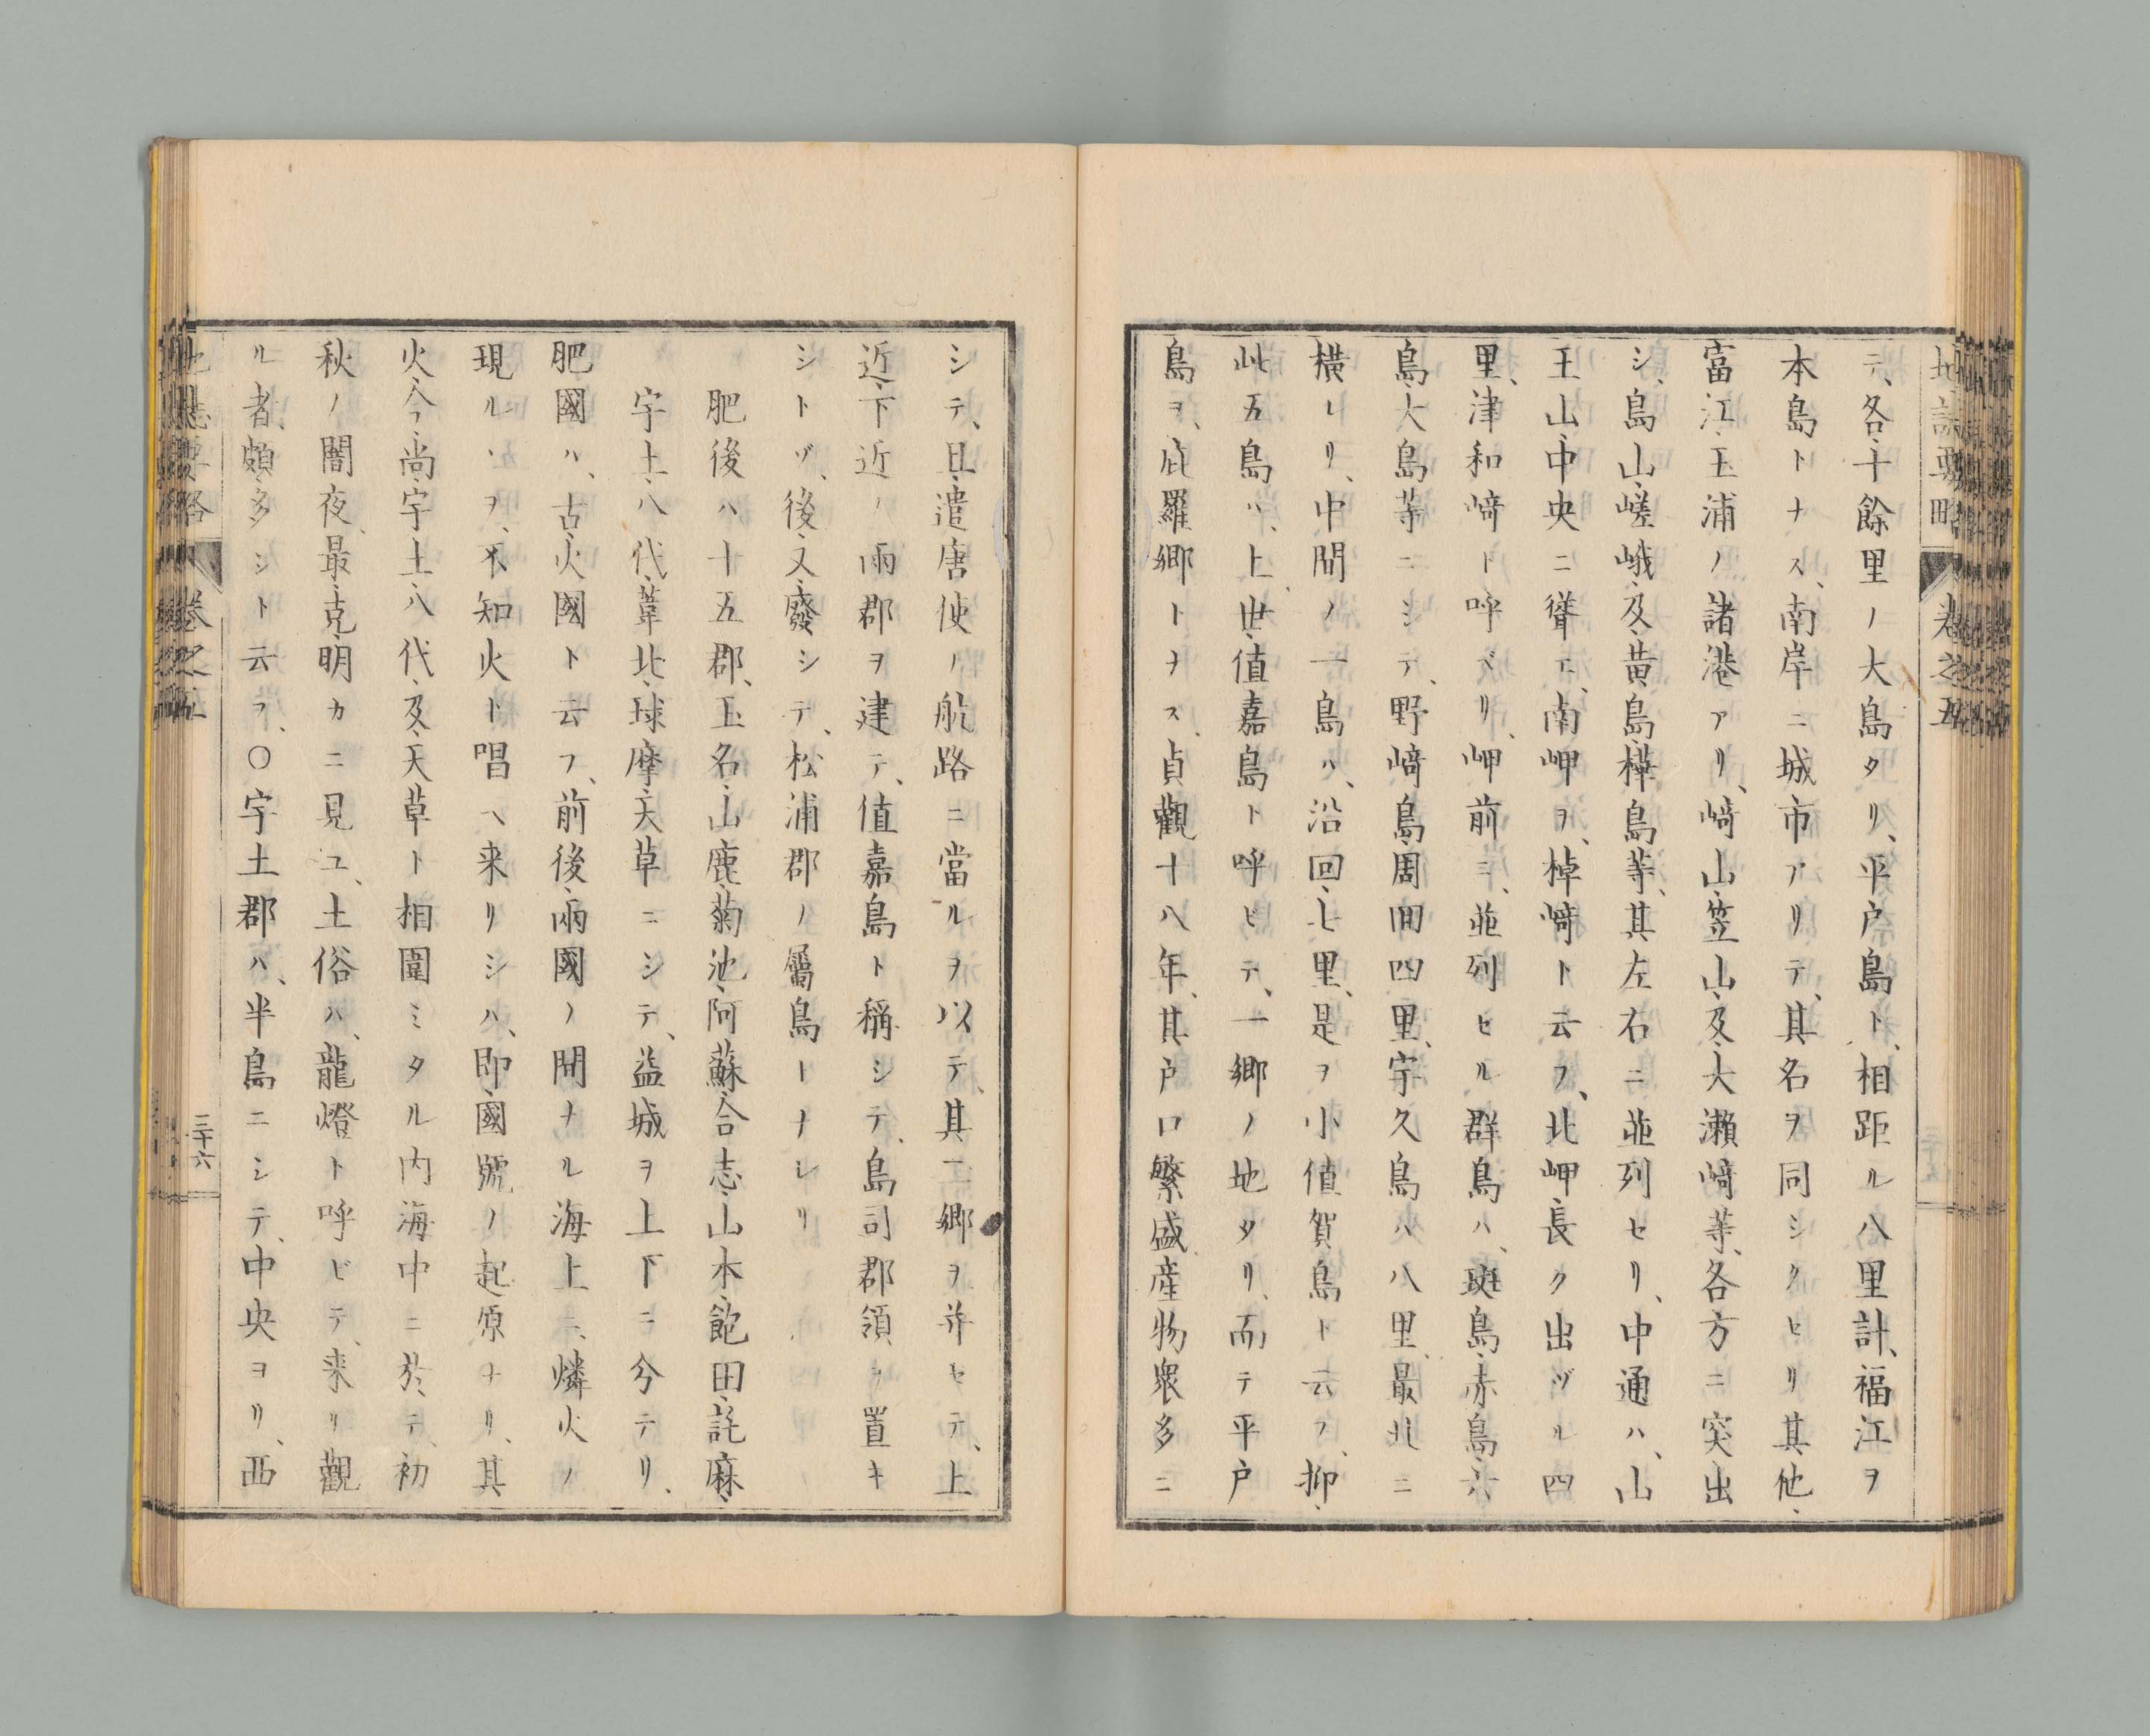 地誌要略 卷之五
ニ、各、十餘里ノ大島タリ、平戶島ト、相距ル八里計、福江ヲ
本島トナス、南岸ニ城市アリテ、其名ヲ同シクセリ其他、
富江、玉浦ノ諸港アリ、﨑山、笠山、及、大瀨﨑等、各方ニ突出
シ、島山、嵯峨、及、黄島、樺島等、其左右ニ並列セリ、中通ハ、山
王山、中央ニ聳エ、南岬ヲ、棹﨑ト云フ、北岬長ク出ヅル四
里、津和﨑ト呼ベリ、岬前ニ、並列セル群島ハ、斑島、赤島、六
島、大島等ニシテ、野﨑島、周囘四里、宇久島ハ八里、最北ニ
橫レリ、中間ノ一島ハ、沿回、七里、是ヲ小值賀島ト云フ、抑、
此五島ハ、上世、值嘉島ト呼ビテ、一鄕ノ地タリ、而テ平戶
島ヲ、庇羅鄕トヲス、貞觀十八年、其戶口繁盛、産物衆多ニ
シテ、且、遣唐使ノ航路ニ當ルヲ以テ、其一鄕ヲ并セテ、上
近、下近ノ兩郡ヲ建テ、值嘉島ト稱シテ、島司郡領ヲ置キ
シトゾ、後、又、廢シテ、松浦郡ノ屬島トナレリ
肥後ハ十五郡、玉名、山鹿、菊池、阿蘇、合志、山本、飽田、託麻、
宇土、八代、葦北、球摩、天草ニシテ、益城ヲ上下ニ分テリ、
肥國ハ、古、火國ト云フ、前後、兩國ノ間ナル海上ニ、燐火ノ
現ルヽヲ、不知火ト唱ヘ来リシハ、即、國號ノ起原ナリ、其
火、今、尚、宇土、八代、及、天草ト相圍ミタル內海中ニ於テ、初
秋ノ闇夜、最、克、明カニ見ユ、土俗ハ、龍燈ト呼ビテ、来リ觀
ル者、頗、多シト云フ、〇宇土郡ハ、半島ニシテ、中央ヨリ、西
地誌要略 卷之五 三十六